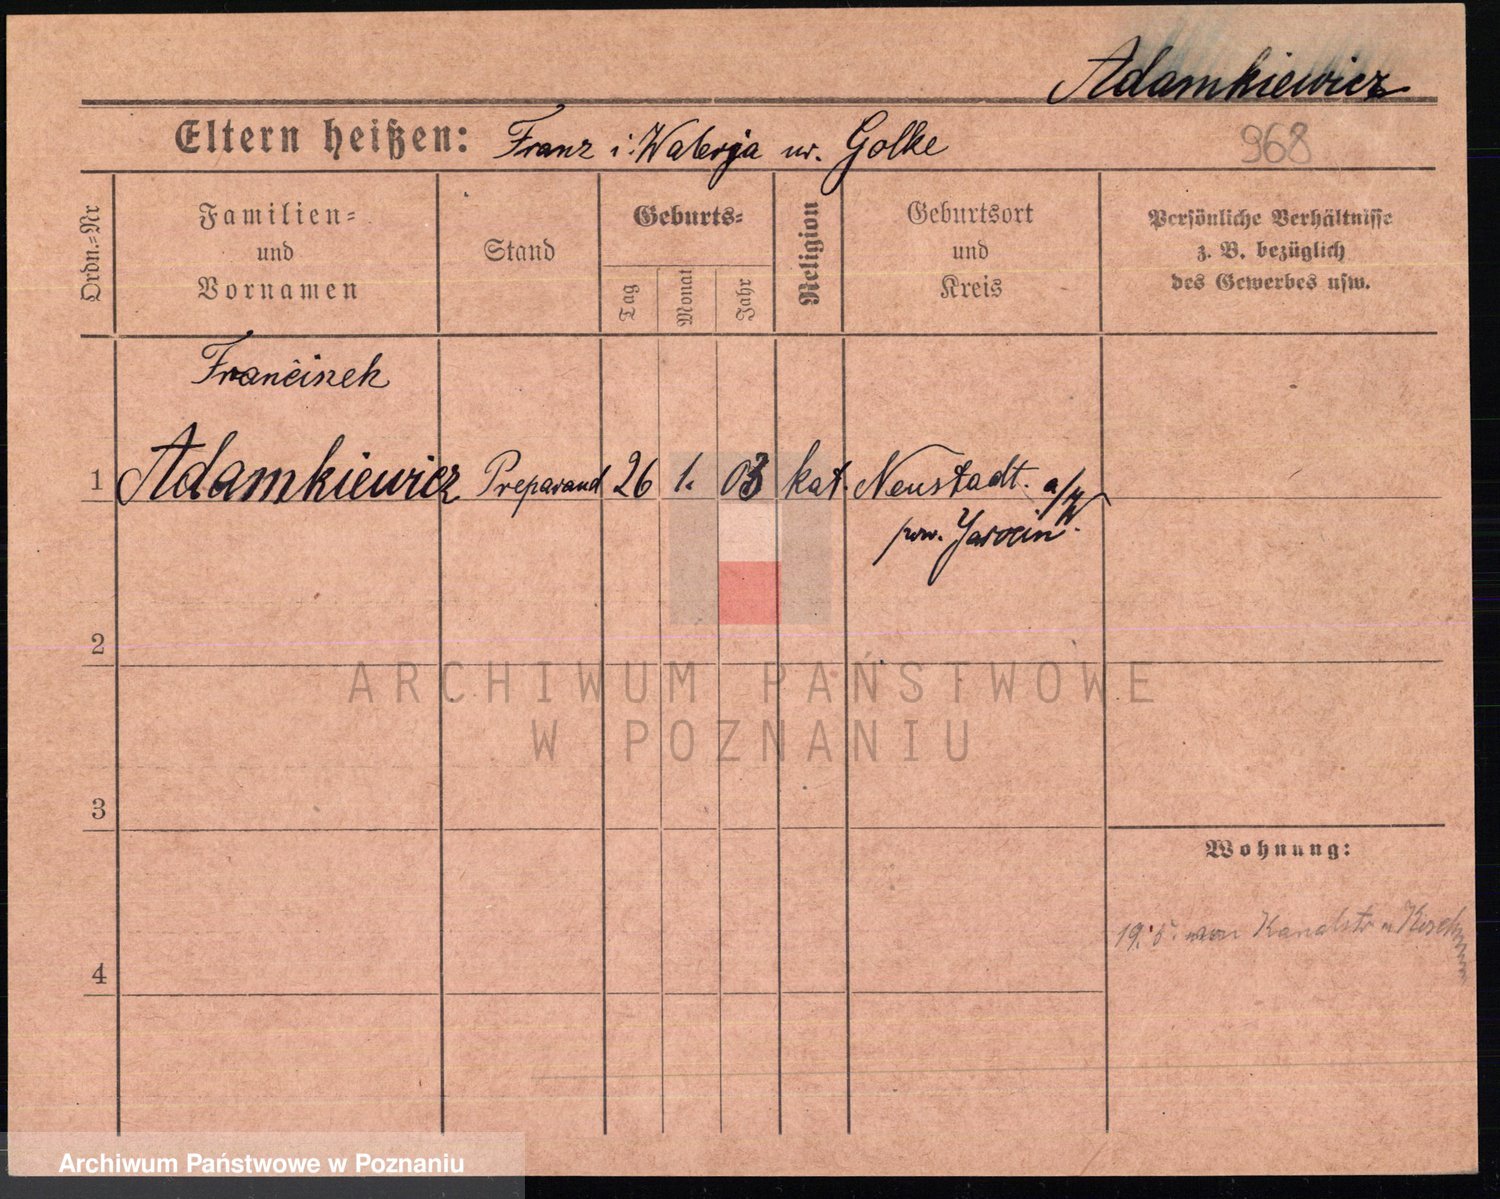 Adamkiewicz
Eltern heißen: Franz i Walerja ur. Golke
968
Ordn.=Nr
Familien=
und
Vornamen
Stand
Geburts=
Tag
Monat
Jahr
Religion
Geburtsort
und
Kreis
Persönliche Verhältnisse
z. B. bezüglich
des Gewerbes usw.
Franciszek
1 Adamkiewicz Preparand 26 1. 03 kat. Neustadt a/W
pow. Jarocin
2
ARCHIWUM PAŃSTWOWE
W POZNANIU
3
Wohnung:
19. 5. von Kanalstr
4
Archiwum Państwowe w Poznaniu